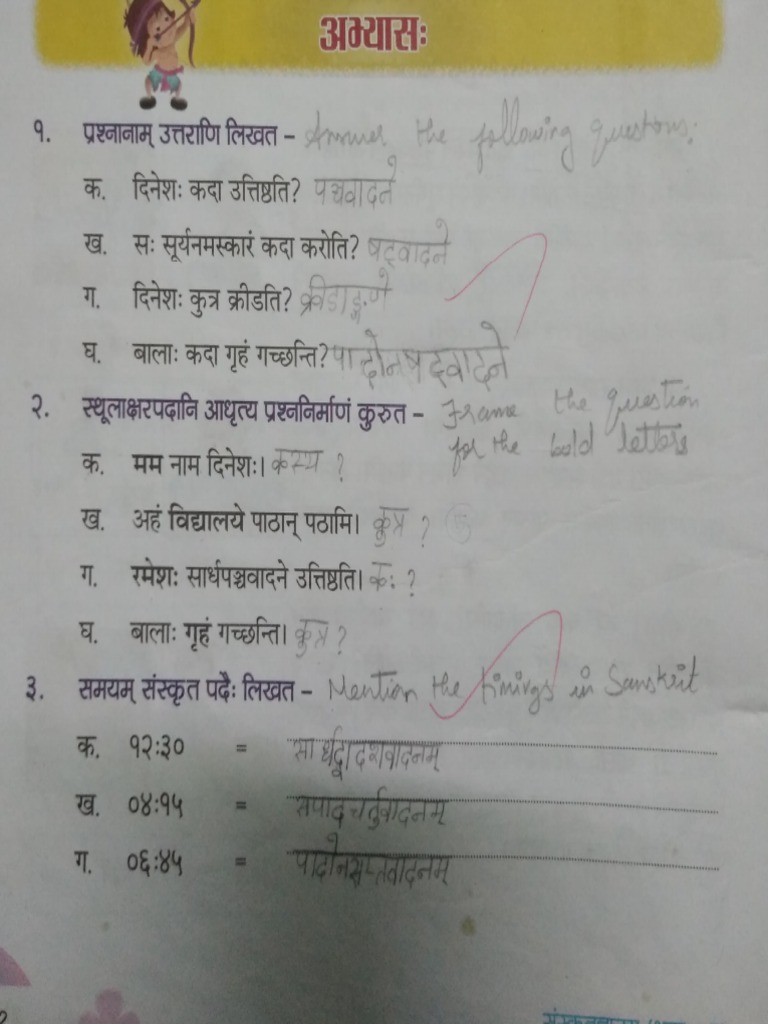 अभ्यासः
१. प्रश्नानाम् उत्तराणि लिखत – Answer the following questions:
क. दिनेशः कदा उत्तिष्ठति? पञ्चवादने
ख. सः सूर्यनमस्कारं कदा करोति? षट्वादने
ग. दिनेशः कुत्र क्रीडति? क्रीडाङ्गणे
घ. बालाः कदा गृहं गच्छन्ति? पादोनषड्वादने
२. स्थूलाक्षरपदानि आधृत्य प्रश्ननिर्माणं कुरुत – Frame the question
for the bold letters
क. मम नाम दिनेशः। कस्य ?
ख. अहं विद्यालये पाठान् पठामि। कुत्र ?
ग. रमेशः सार्धपञ्चवादने उत्तिष्ठति। कः ?
घ. बालाः गृहं गच्छन्ति। कुत्र ?
३. समयम् संस्कृत पदैः लिखत – Mention the timings in Sanskrit
क. १२:३० = सार्धद्वादशवादनम्
ख. ०४:१५ = सपादचर्तुवादनम्
ग. ०६:४५ = पादोनसप्तवादनम्